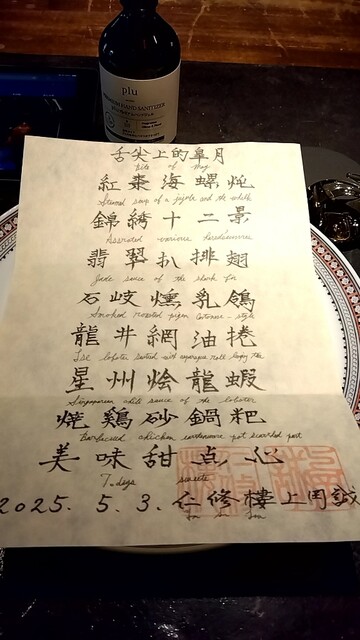 plu
HAND SANITIZER
舌尖上的皐月
bite of May
紅棗海螺炖
Steamed soup of a jujube and the whelk
錦綉十二景
Assorted various
翡翠扒排翅
Jade sauce of the shark fin
石岐燻乳鴿
Smoked roasted pigeon Cantonese-style
龍井網油捲
星州烩龍蝦
Singaporean chili sauce of the lobster
焼鶏砂鍋粑
Barbecued chicken earthenware pot scorched part
美味甜点心
7.days sweets
2025. 5. 3. 仁修樓上岡誠